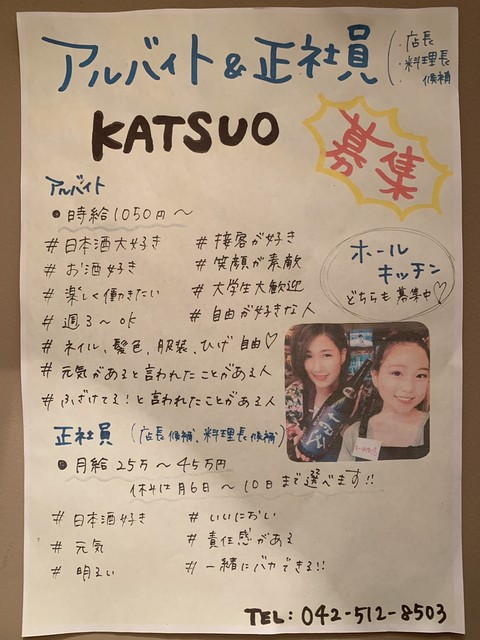 アルバイト&正社員 (・店長 ・料理長 候補)
KATSUO
募集
アルバイト
●時給1050円〜
#日本酒大好き #接客が好き
#お酒好き #笑顔が素敵
#楽しく働きたい #大学生大歓迎
#週3〜OK #自由が好きな人
#ネイル、髪色、服装、ひげ 自由♡
#元気があると言われたことがある人
#ふざけてる!と言われたことがある人
ホール
キッチン
どちらも募集中♡
正社員 (店長候補、料理長候補)
●月給25万〜45万円
休みは月6日〜10日まで選べます!!
#日本酒好き #いいにおい
#元気 #責任感がある
#明るい #一緒にバカできる!!
TEL: 042-512-8503